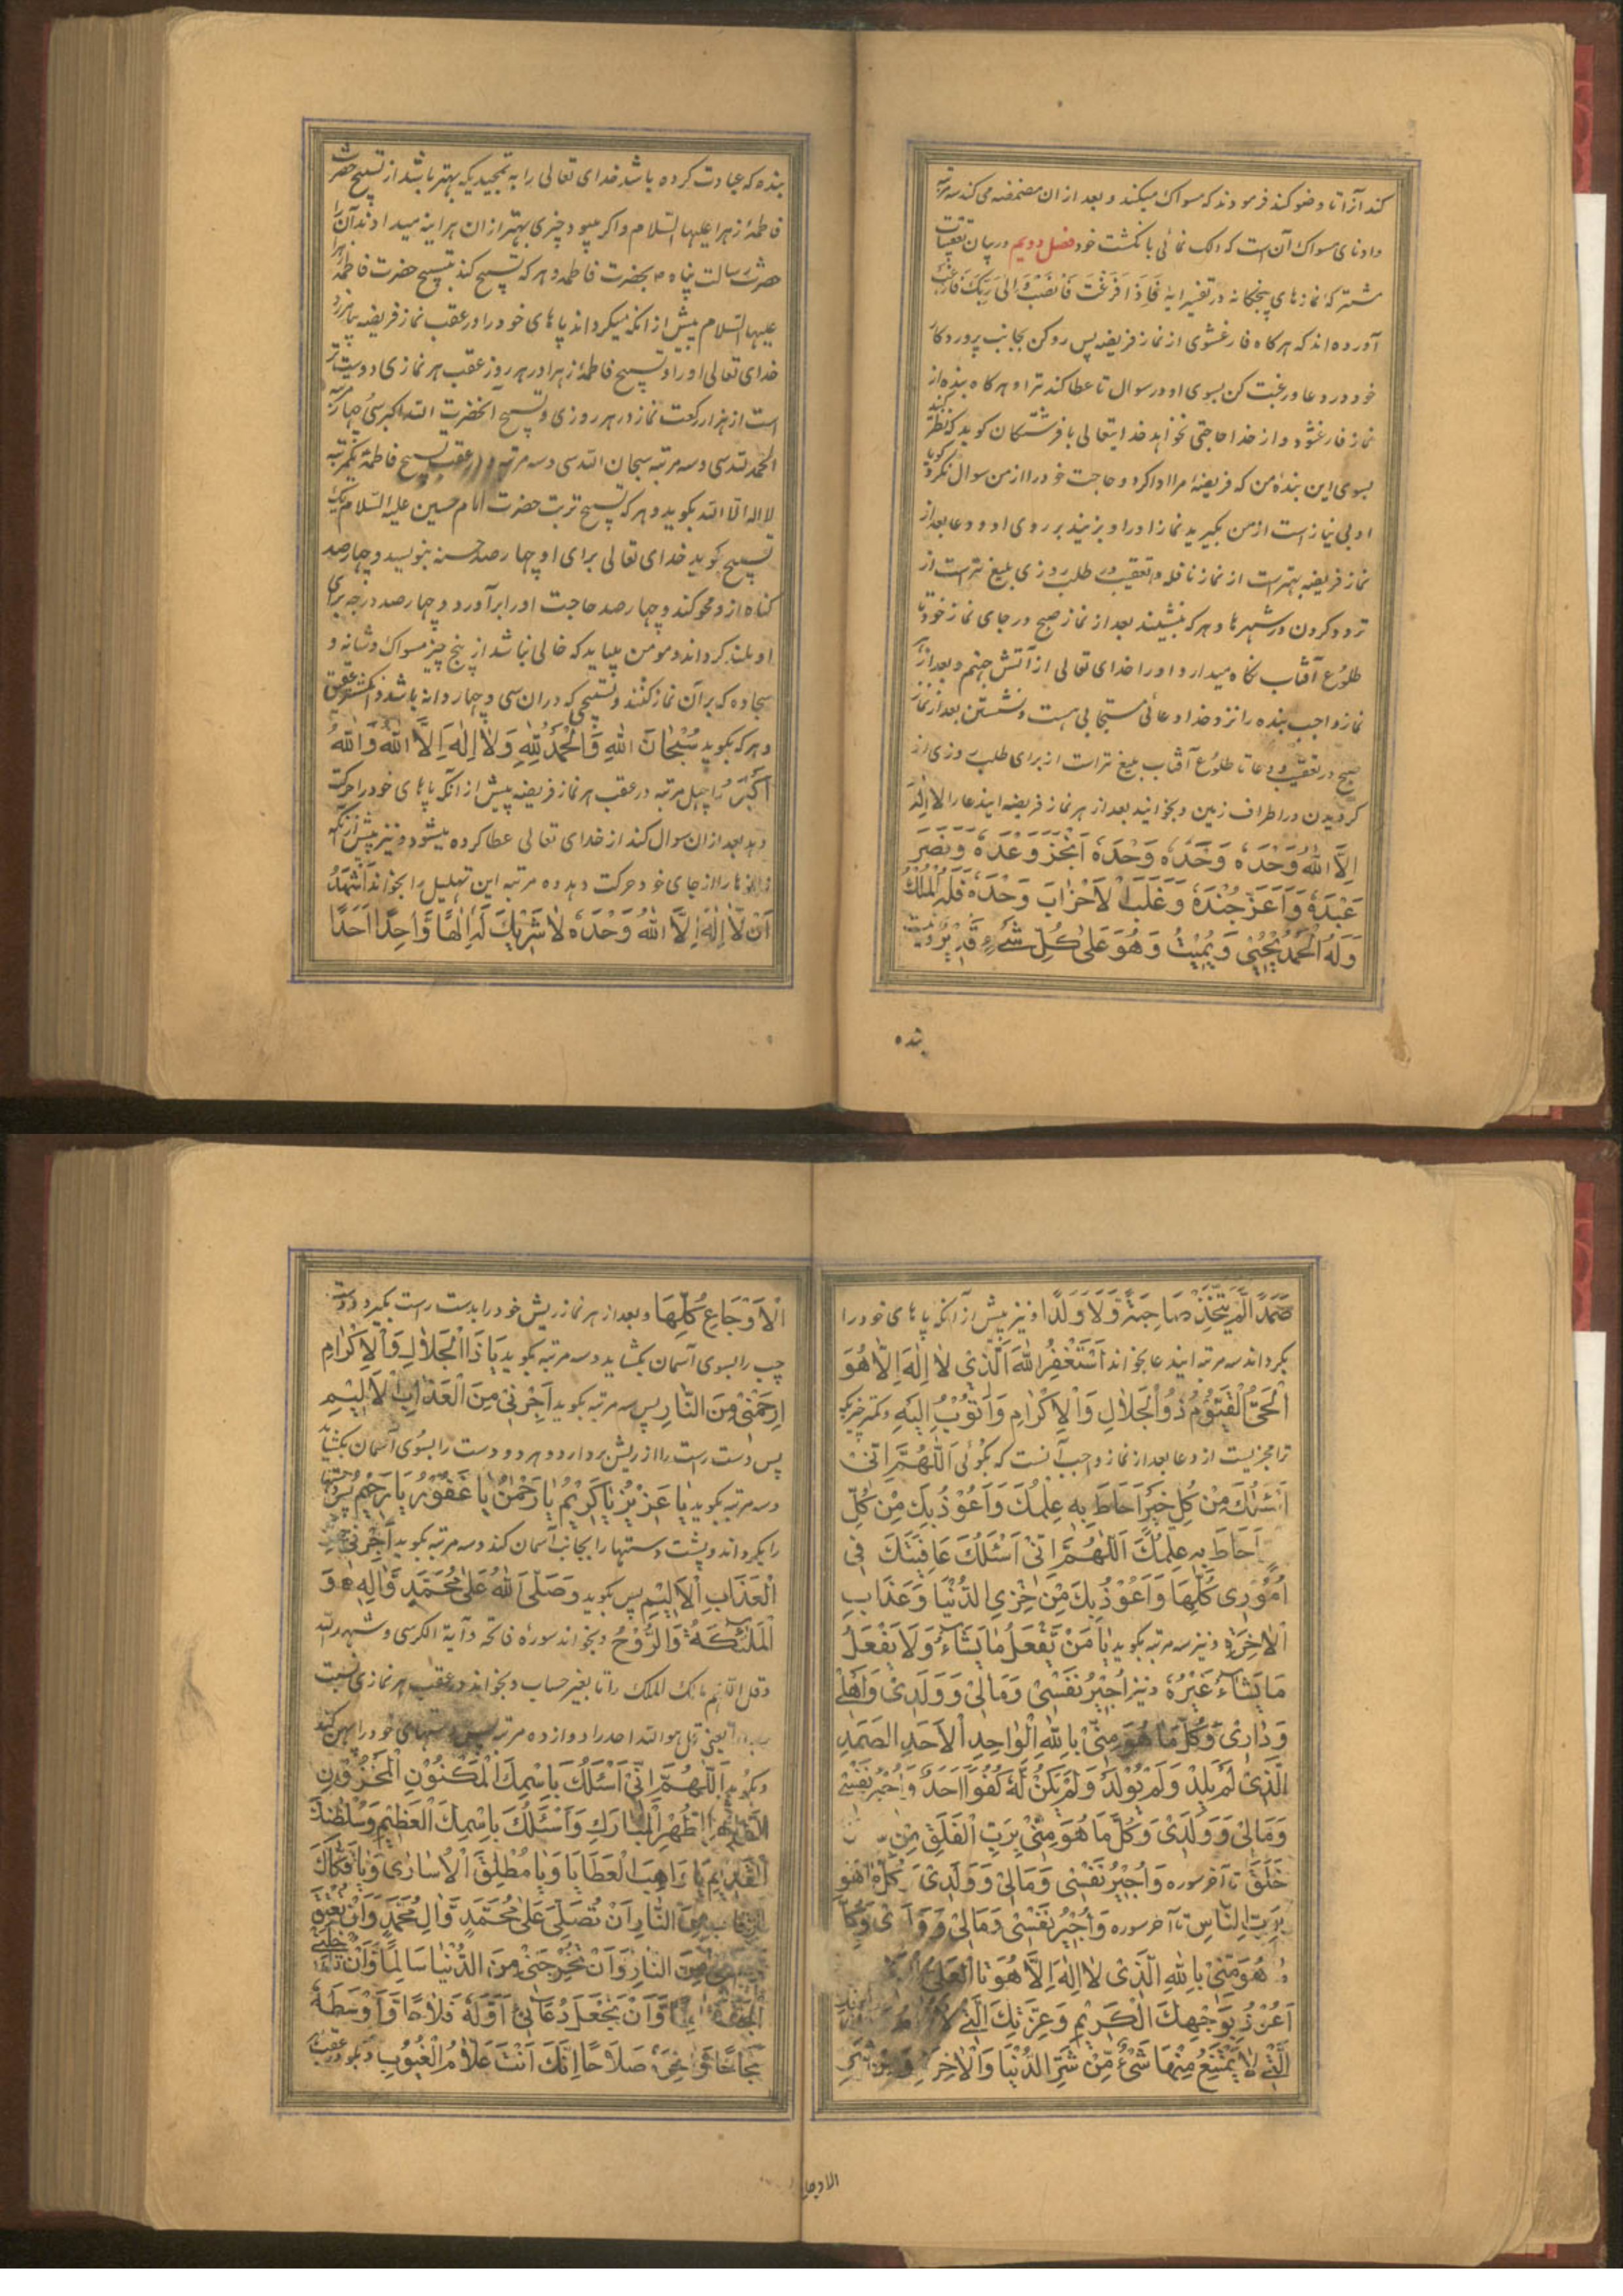 کند آنرا تا وضو کند فرمودند که مسواک میکند و بعد از ان مضمضه می کند سه مرتبه
و ادنای مسواک آن است که دلک نمائی بانگشت خود فصل دویم در بیان تعقیبات
مشترکه نمازهای پنجکانه در تفسیر ایه فَاِذَا فَرَغْتَ فَانْصَبْ وَاِلٰی رَبِّکَ فَارْغَبْ
آورده اند که هرکاه فارغ شوی از نماز فریضه پس رو کن بجانب پروردکار
خود در دعا و رغبت کن بسوی او در سوال تا عطا کند ترا و هرکاه بنده از
نماز فارغ شود و از خدا حاجتی نخواهد خدایتعالی با فرشتکان کوید که نظر کنید
بسوی این بندهٔ من که فریضهٔ مرا ادا کرد و حاجت خود را از من سوال نکرد کویا
او بی نیاز است از من بکیرید نماز او را و بزنید بر روی او و دعا بعد از
نماز فریضه بهتر است از نماز نافله و تعقیب در طلب روزی بلیغ تر است از
تردد کردن در شهرها و هر که بنشیند بعد از نماز صبح در جای نماز خود تا
طلوع آفتاب نکاه میدارد او را خدای تعالی از آتش جهنم و بعد از هر
نماز واجب بنده را نزد خدا دعائی مستجابی هست و نشستن بعد از نماز
صبح در تعقیب و دعا تا طلوع آفتاب بلیغ تر است از برای طلب روزی از
کردیدن در اطراف زمین و بخوانید بعد از هر نماز فریضه ایندعا را لَا اِلٰهَ
اِلَّا اللّٰهُ وَحْدَهُ وَحْدَهُ وَحْدَهُ اَنْجَزَ وَعْدَهُ وَنَصَرَ
عَبْدَهُ وَاَعَزَّ جُنْدَهُ وَغَلَبَ الْاَحْزَابَ وَحْدَهُ فَلَهُ الْمُلْکُ
وَلَهُ الْحَمْدُ یُحْیِیْ وَیُمِیْتُ وَهُوَ عَلٰی کُلِّ شَیْءٍ قَدِیْرٌ و نیست
بنده
بنده که عبادت کرده باشد خدای تعالی را به تمجیدیکه بهتر باشد از تسبیح حضرت
فاطمهٔ زهرا علیها السلام و اکر میبود چیزی بهتر از ان هراینه میدادند آن را
حضرت رسالت پناه ص بحضرت فاطمه و هر که تسبیح کند بتسبیح حضرت فاطمهٔ زهرا
علیها السلام پیش از انکه میکرداند پاهای خود را در عقب نماز فریضه بیامرزد
خدای تعالی او را و تسبیح فاطمهٔ زهرا در هر روز عقب هر نمازی دوست تر
است از هزار رکعت نماز در هر روزی و تسبیح آنحضرت الله اکبر سی چهار مرتبه
الحمد لله سی و سه مرتبه سبحان الله سی و سه مرتبه و در عقب تسبیح فاطمهٔ یکمرتبه
لا اله الا الله بکوید و هر که تسبیح تربت حضرت امام حسین علیه السلام یک
تسبیح بکوید خدای تعالی برای او چهارصد حسنه بنویسد و چهارصد
کناه ازو محو کند و چهارصد حاجت او را برآورد و چهارصد درجه برای
او بلند کرداند و مومن میباید که خالی نباشد از پنج چیز مسواک و شانه و
سجاده که بر آن نماز کنند و تسبیحی که دران سی و چهار دانه باشد و انکشتر عقیق
و هر که بکوید سُبْحَانَ اللّٰهِ وَالْحَمْدُ لِلّٰهِ وَلَا اِلٰهَ اِلَّا اللّٰهُ وَاللّٰهُ
اَکْبَرُ را چهل مرتبه در عقب هر نماز فریضه پیش از آنکه پاهای خود را حرکت
دهد بعد از ان سوال کند از خدای تعالی عطا کرده میشود و نیز پیش از آنکه
زانوها را از جای خود حرکت دهد ده مرتبه این تهلیل را بخواند اَشْهَدُ
اَنْ لَا اِلٰهَ اِلَّا اللّٰهُ وَحْدَهُ لَا شَرِیْکَ لَهُ اِلٰهًا وَاحِدًا اَحَدًا
صَمَدًا لَمْ یَتَّخِذْ صَاحِبَةً وَلَا وَلَدًا و نیز پیش از آنکه پاهای خود را
بکرداند سه مرتبه ایندعا بخواند اَسْتَغْفِرُ اللّٰهَ الَّذِیْ لَا اِلٰهَ اِلَّا هُوَ
الْحَیُّ الْقَیُّوْمُ ذُو الْجَلَالِ وَالْاِکْرَامِ وَاَتُوْبُ اِلَیْهِ و کمتر چیزیکه
ترا مجزیست از دعا بعد از نماز واجب آنست که بکوئی اَللّٰهُمَّ اِنِّیْ
اَسْئَلُکَ مِنْ کُلِّ خَیْرٍ اَحَاطَ بِهِ عِلْمُکَ وَاَعُوْذُ بِکَ مِنْ کُلِّ
اَحَاطَ بِهِ عِلْمُکَ اَللّٰهُمَّ اِنِّیْ اَسْئَلُکَ عَافِیَتَکَ فِیْ
اُمُوْرِیْ کُلِّهَا وَاَعُوْذُ بِکَ مِنْ خِزْیِ الدُّنْیَا وَعَذَابِ
الْاٰخِرَةِ و نیز سه مرتبه بکوید یَا مَنْ یَفْعَلُ مَا یَشَاءُ وَلَا یَفْعَلُ
مَا یَشَاءُ غَیْرُهُ و نیز اُجِیْرُ نَفْسِیْ وَمَالِیْ وَوَلَدِیْ وَاَهْلِیْ
وَدَارِیْ وَکُلَّ مَا هُوَ مِنِّیْ بِاللّٰهِ الْوَاحِدِ الْاَحَدِ الصَّمَدِ
الَّذِیْ لَمْ یَلِدْ وَلَمْ یُوْلَدْ وَلَمْ یَکُنْ لَهُ کُفُوًا اَحَدٌ وَاُجِیْرُ نَفْسِیْ
وَمَالِیْ وَوَلَدِیْ وَکُلَّ مَا هُوَ مِنِّیْ بِرَبِّ الْفَلَقِ مِنْ
خَلَقَ تا آخر سوره وَاُجِیْرُ نَفْسِیْ وَمَالِیْ وَوَلَدِیْ کُلَّ مَا هُوَ
بِرَبِّ النَّاسِ تا آخر سوره وَاُجِیْرُ نَفْسِیْ وَمَالِیْ
هُوَ مِنِّیْ بِاللّٰهِ الَّذِیْ لَا اِلٰهَ اِلَّا هُوَ
اَعُوْذُ بِوَجْهِکَ الْکَرِیْمِ وَعِزَّتِکَ الَّتِیْ
الَّتِیْ لَا یَمْتَنِعُ مِنْهَا شَیْءٌ مِنْ شَرِّ الدُّنْیَا وَالْاٰخِرَةِ
الاوجاع
الْاَوْجَاعِ کُلِّهَا و بعد از هر نماز ریش خود را بدست راست بکیرد و دست
چپ را بسوی آسمان بکشاید و سه مرتبه بکوید یَا ذَا الْجَلَالِ وَالْاِکْرَامِ
اِرْحَمْنِیْ مِنَ النَّارِ پس سه مرتبه بکوید اَجِرْنِیْ مِنَ الْعَذَابِ الْاَلِیْمِ
پس دست راست را از ریش بردارد و هر دو دست را بسوی آسمان بکشاید
و سه مرتبه بکوید یَا عَزِیْزُ یَا کَرِیْمُ یَا رَحْمٰنُ یَا غَفُوْرُ یَا رَحِیْمُ پس دستها
را بکرداند و پشت دستها را بجانب آسمان کند و سه مرتبه بکوید اَجِرْنِیْ مِنَ
الْعَذَابِ الْاَلِیْمِ پس بکوید وَصَلَّی اللّٰهُ عَلٰی مُحَمَّدٍ وَاٰلِهِ وَ
الْمَلٰئِکَةُ وَالرُّوْحُ و بخواند سورهٔ فاتحه و آیة الکرسی و شهد الله
و قل اللهم مالک الملک را تا بغیر حساب و بخواند در عقب هر نمازی نسبت
یعنی قل هو الله احد را دوازده مرتبه پس دستهای خود را پهن کند
و بکوید اَللّٰهُمَّ اِنِّیْ اَسْئَلُکَ بِاسْمِکَ الْمَکْنُوْنِ الْمَخْزُوْنِ
الطُّهْرِ الْمُبَارَکِ وَاَسْئَلُکَ بِاسْمِکَ الْعَظِیْمِ وَسُلْطَانِکَ
الْقَدِیْمِ یَا وَاهِبَ الْعَطَایَا وَیَا مُطْلِقَ الْاُسَارٰی وَیَا فَکَّاکَ
الرِّقَابِ مِنَ النَّارِ اَنْ تُصَلِّیَ عَلٰی مُحَمَّدٍ وَاٰلِ مُحَمَّدٍ وَاَنْ تُعْتِقَ
مِنَ النَّارِ وَاَنْ تُخْرِجَنِیْ مِنَ الدُّنْیَا سَالِمًا وَاَنْ تُدْخِلَنِیْ
الْجَنَّةَ وَاَنْ تَجْعَلَ دُعَائِیْ اَوَّلَهُ فَلَاحًا وَاَوْسَطَهُ
نَجَاحًا وَاٰخِرَهُ صَلَاحًا اِنَّکَ اَنْتَ عَلَّامُ الْغُیُوْبِ و بکو در عقب